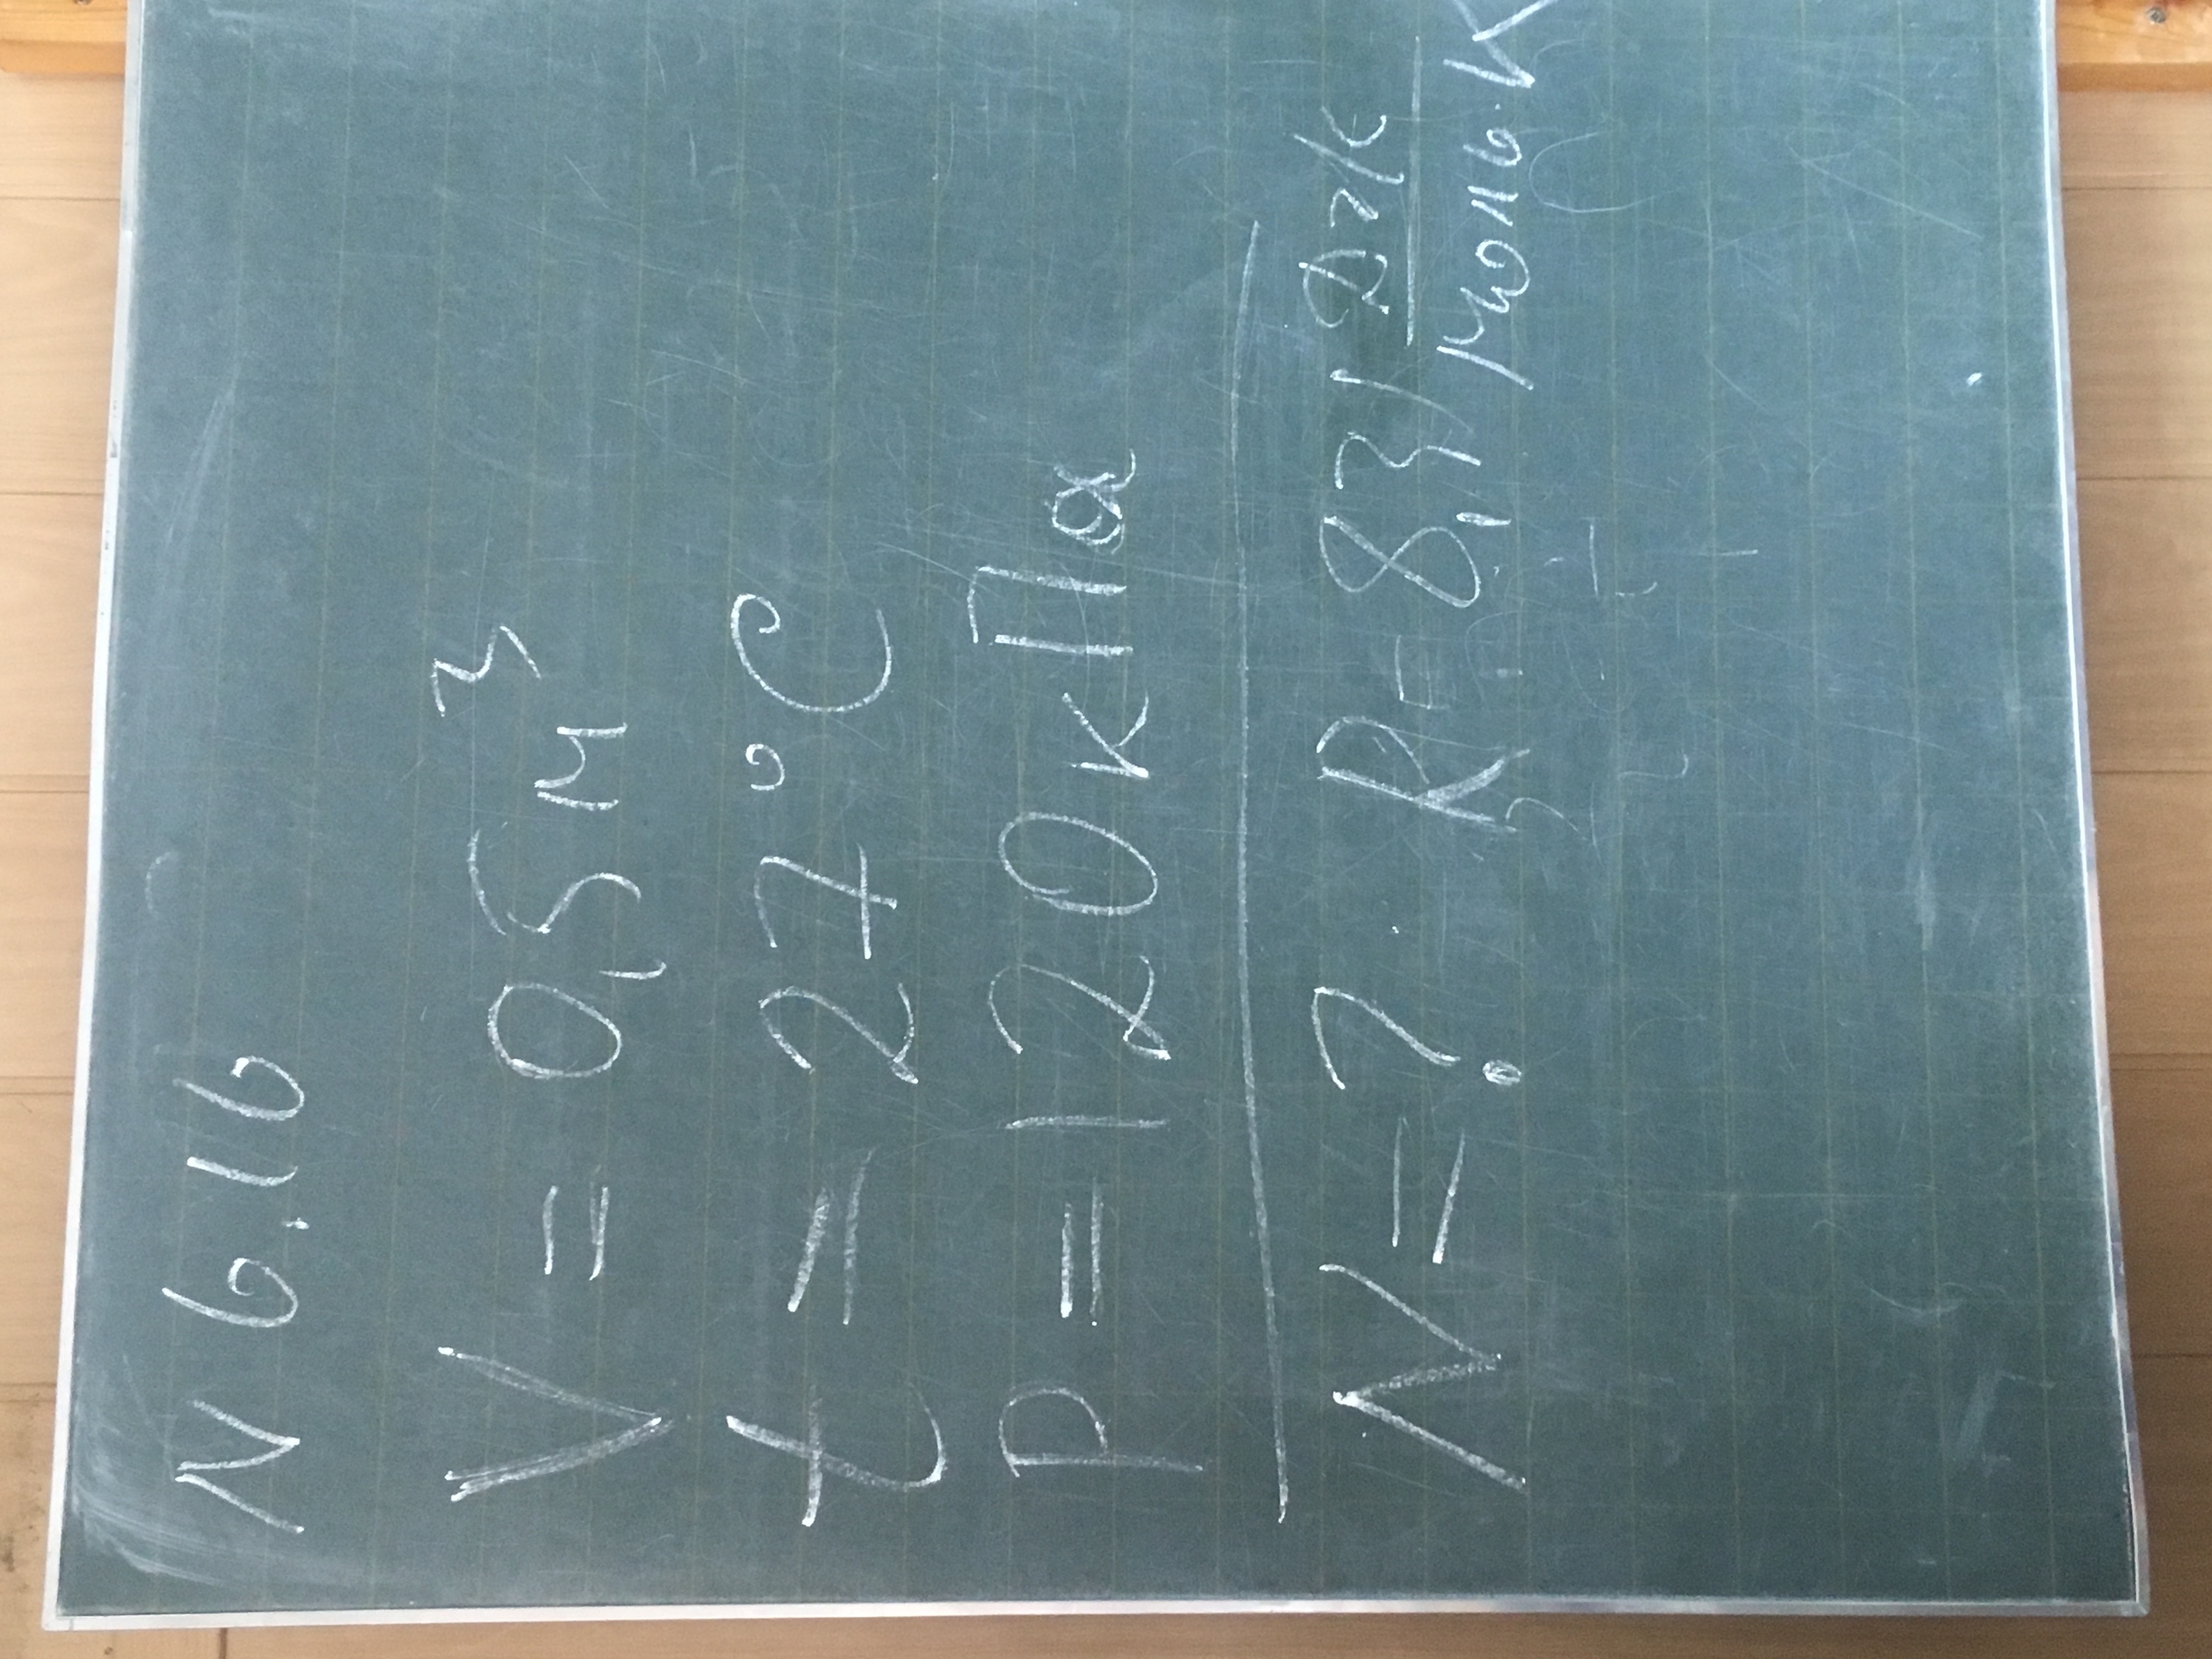 N 6.116
V = 0,5 м³
t = 27 °C
P = 120 кПа
N = ? R = 8,31 Дж/моль·К